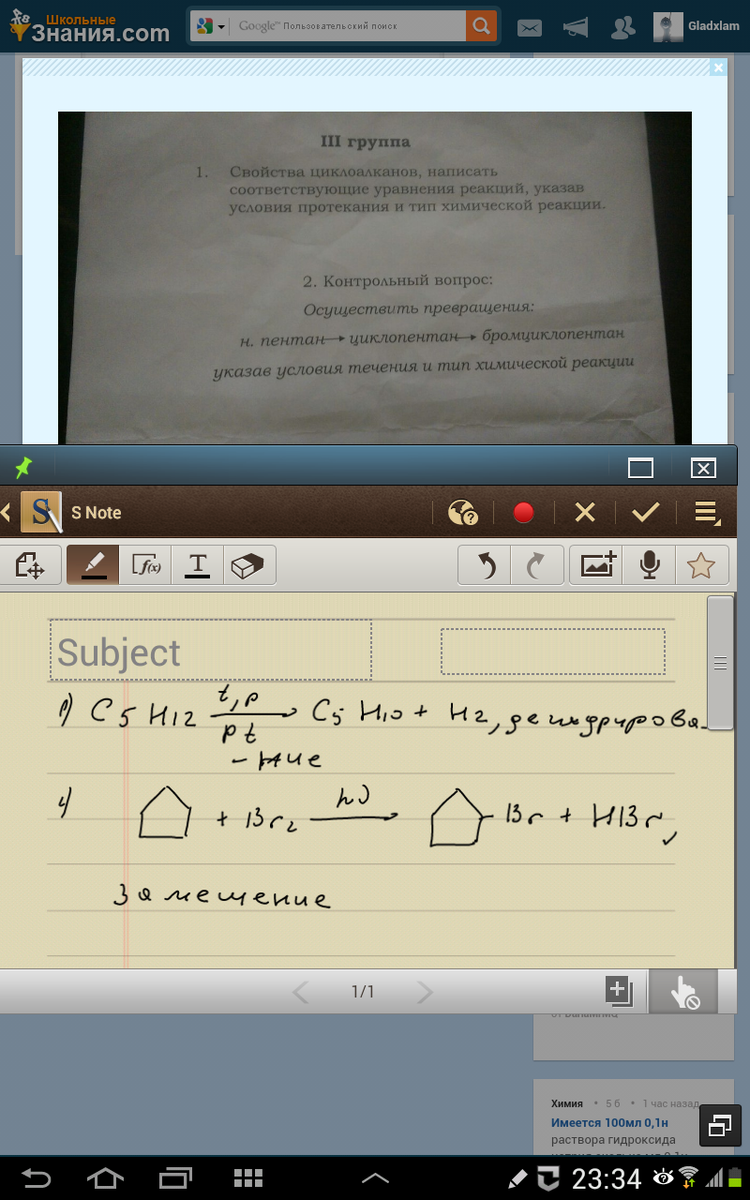 Школьные
Знания.com
Google™ Пользовательский поиск
Gladxlam
III группа
1. Свойства циклоалканов, написать
соответствующие уравнения реакций, указав
условия протекания и тип химической реакции.
2. Контрольный вопрос:
Осуществить превращения:
н. пентан→ циклопентан→ бромциклопентан
указав условия течения и тип химической реакции
S Note
f(x)
T
Subject
C5 H12 t, p / pt → C5 H10 + H2, дегидрирова-
-ние
+ Br2 hν → Br + HBr,
Замещение
1/1
Химия • 5 б • 1 час назад
Имеется 100мл 0,1н
раствора гидроксида
23:34